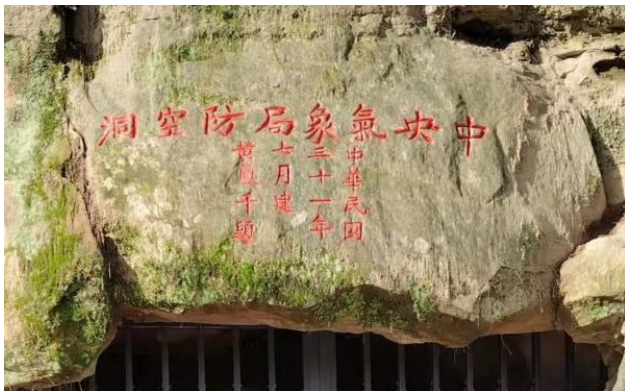 中央氣象局防空洞
中華民國
三十一年
七月建
黃厦千題